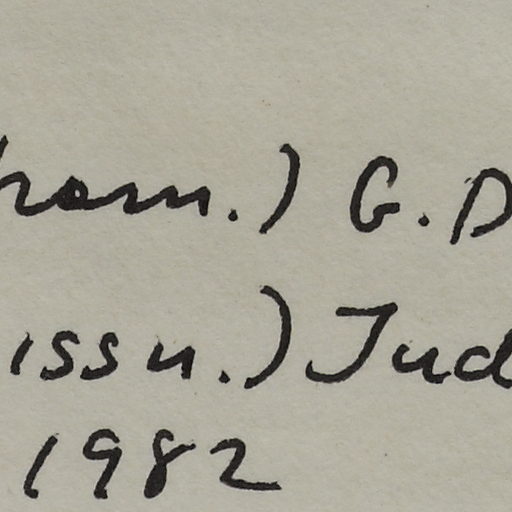 ham.) G. D
issn.) Jud
1982